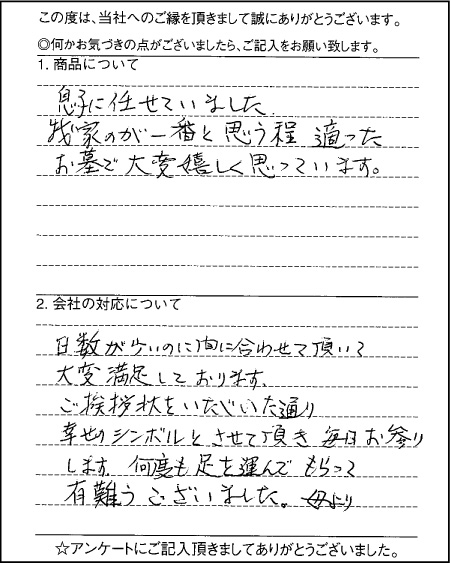 この度は、当社へのご縁を頂きまして誠にありがとうございます。
◎何かお気づきの点がございましたら、ご記入をお願い致します。
1. 商品について
息子に任せていました
我家のが一番と思う程 適った
お墓で大変嬉しく思っています。
2. 会社の対応について
日数が少いのに間に合わせて頂いて
大変満足しております。
ご挨拶状をいただいた通り
幸せのシンボルとさせて頂き 毎日お参り
します。何度も足を運んで もらって
有難うございました。 母より
☆アンケートにご記入頂きましてありがとうございました。